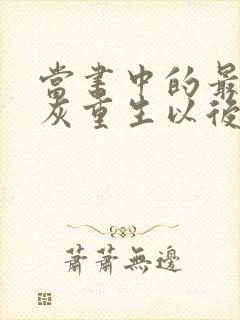 當書中的最
灰重生以後
蕭蕭無邊